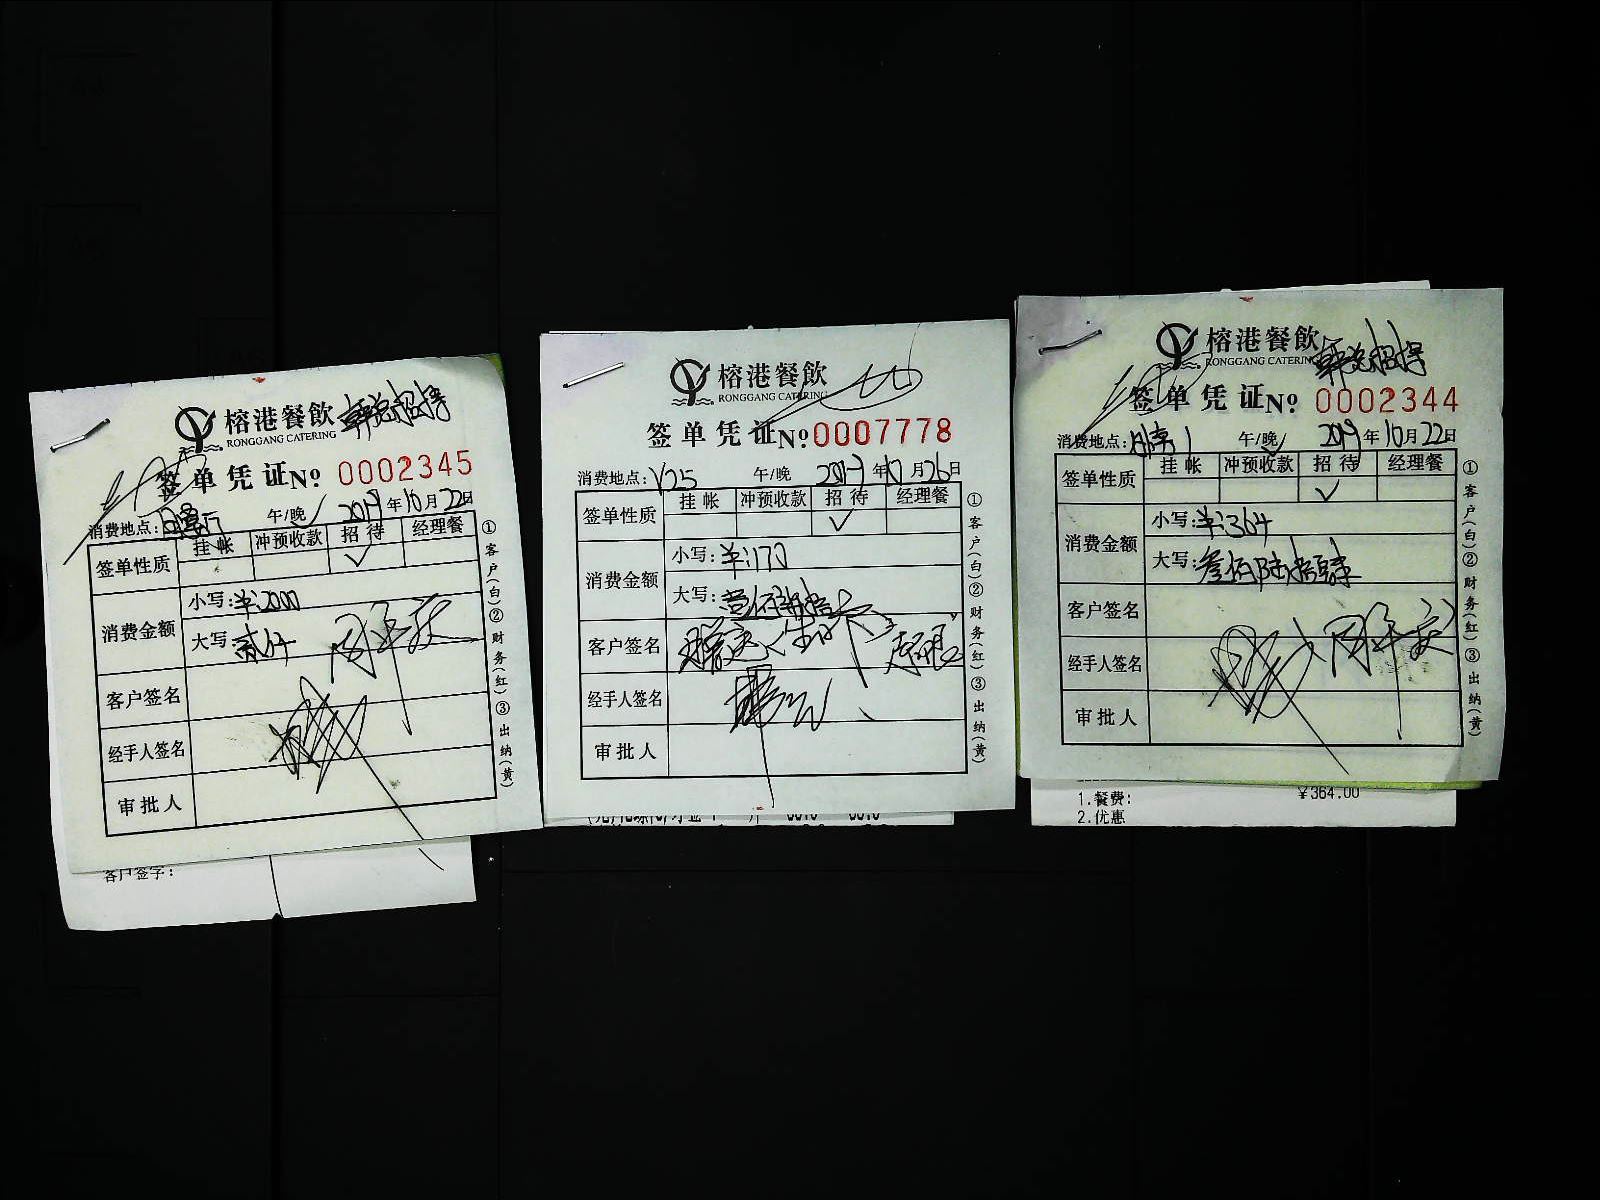 榕港餐飲
RONGGANG CATERING
韩总招待
签单凭证 № 0002345
消费地点: 午/晚 ✓ 2019年10月22日
签单性质 挂帐 冲预收款 招待 经理餐
✓
消费金额
小写:¥:2000
大写:贰仟
客户签名
经手人签名
审批人
①客户(白)②财务(红)③出纳(黄)
客户签字:
榕港餐飲
RONGGANG CATERING
签单凭证 №0007778
消费地点:V25 午/晚 2019年10月26日
签单性质 挂帐 冲预收款 招待 经理餐
✓
消费金额
小写:¥:170
大写:壹佰柒拾
客户签名
经手人签名
审批人
①客户(白)②财务(红)③出纳(黄)
榕港餐飲
RONGGANG CATERING
韩总招待
签单凭证 №0002344
消费地点: 1 午/晚 ✓ 2019年10月22日
签单性质 挂帐 冲预收款 招待 经理餐
✓
消费金额
小写:¥:364
大写:叁佰陆拾肆
客户签名
经手人签名
审批人
①客户(白)②财务(红)③出纳(黄)
1.餐费: ¥364.00
2.优惠